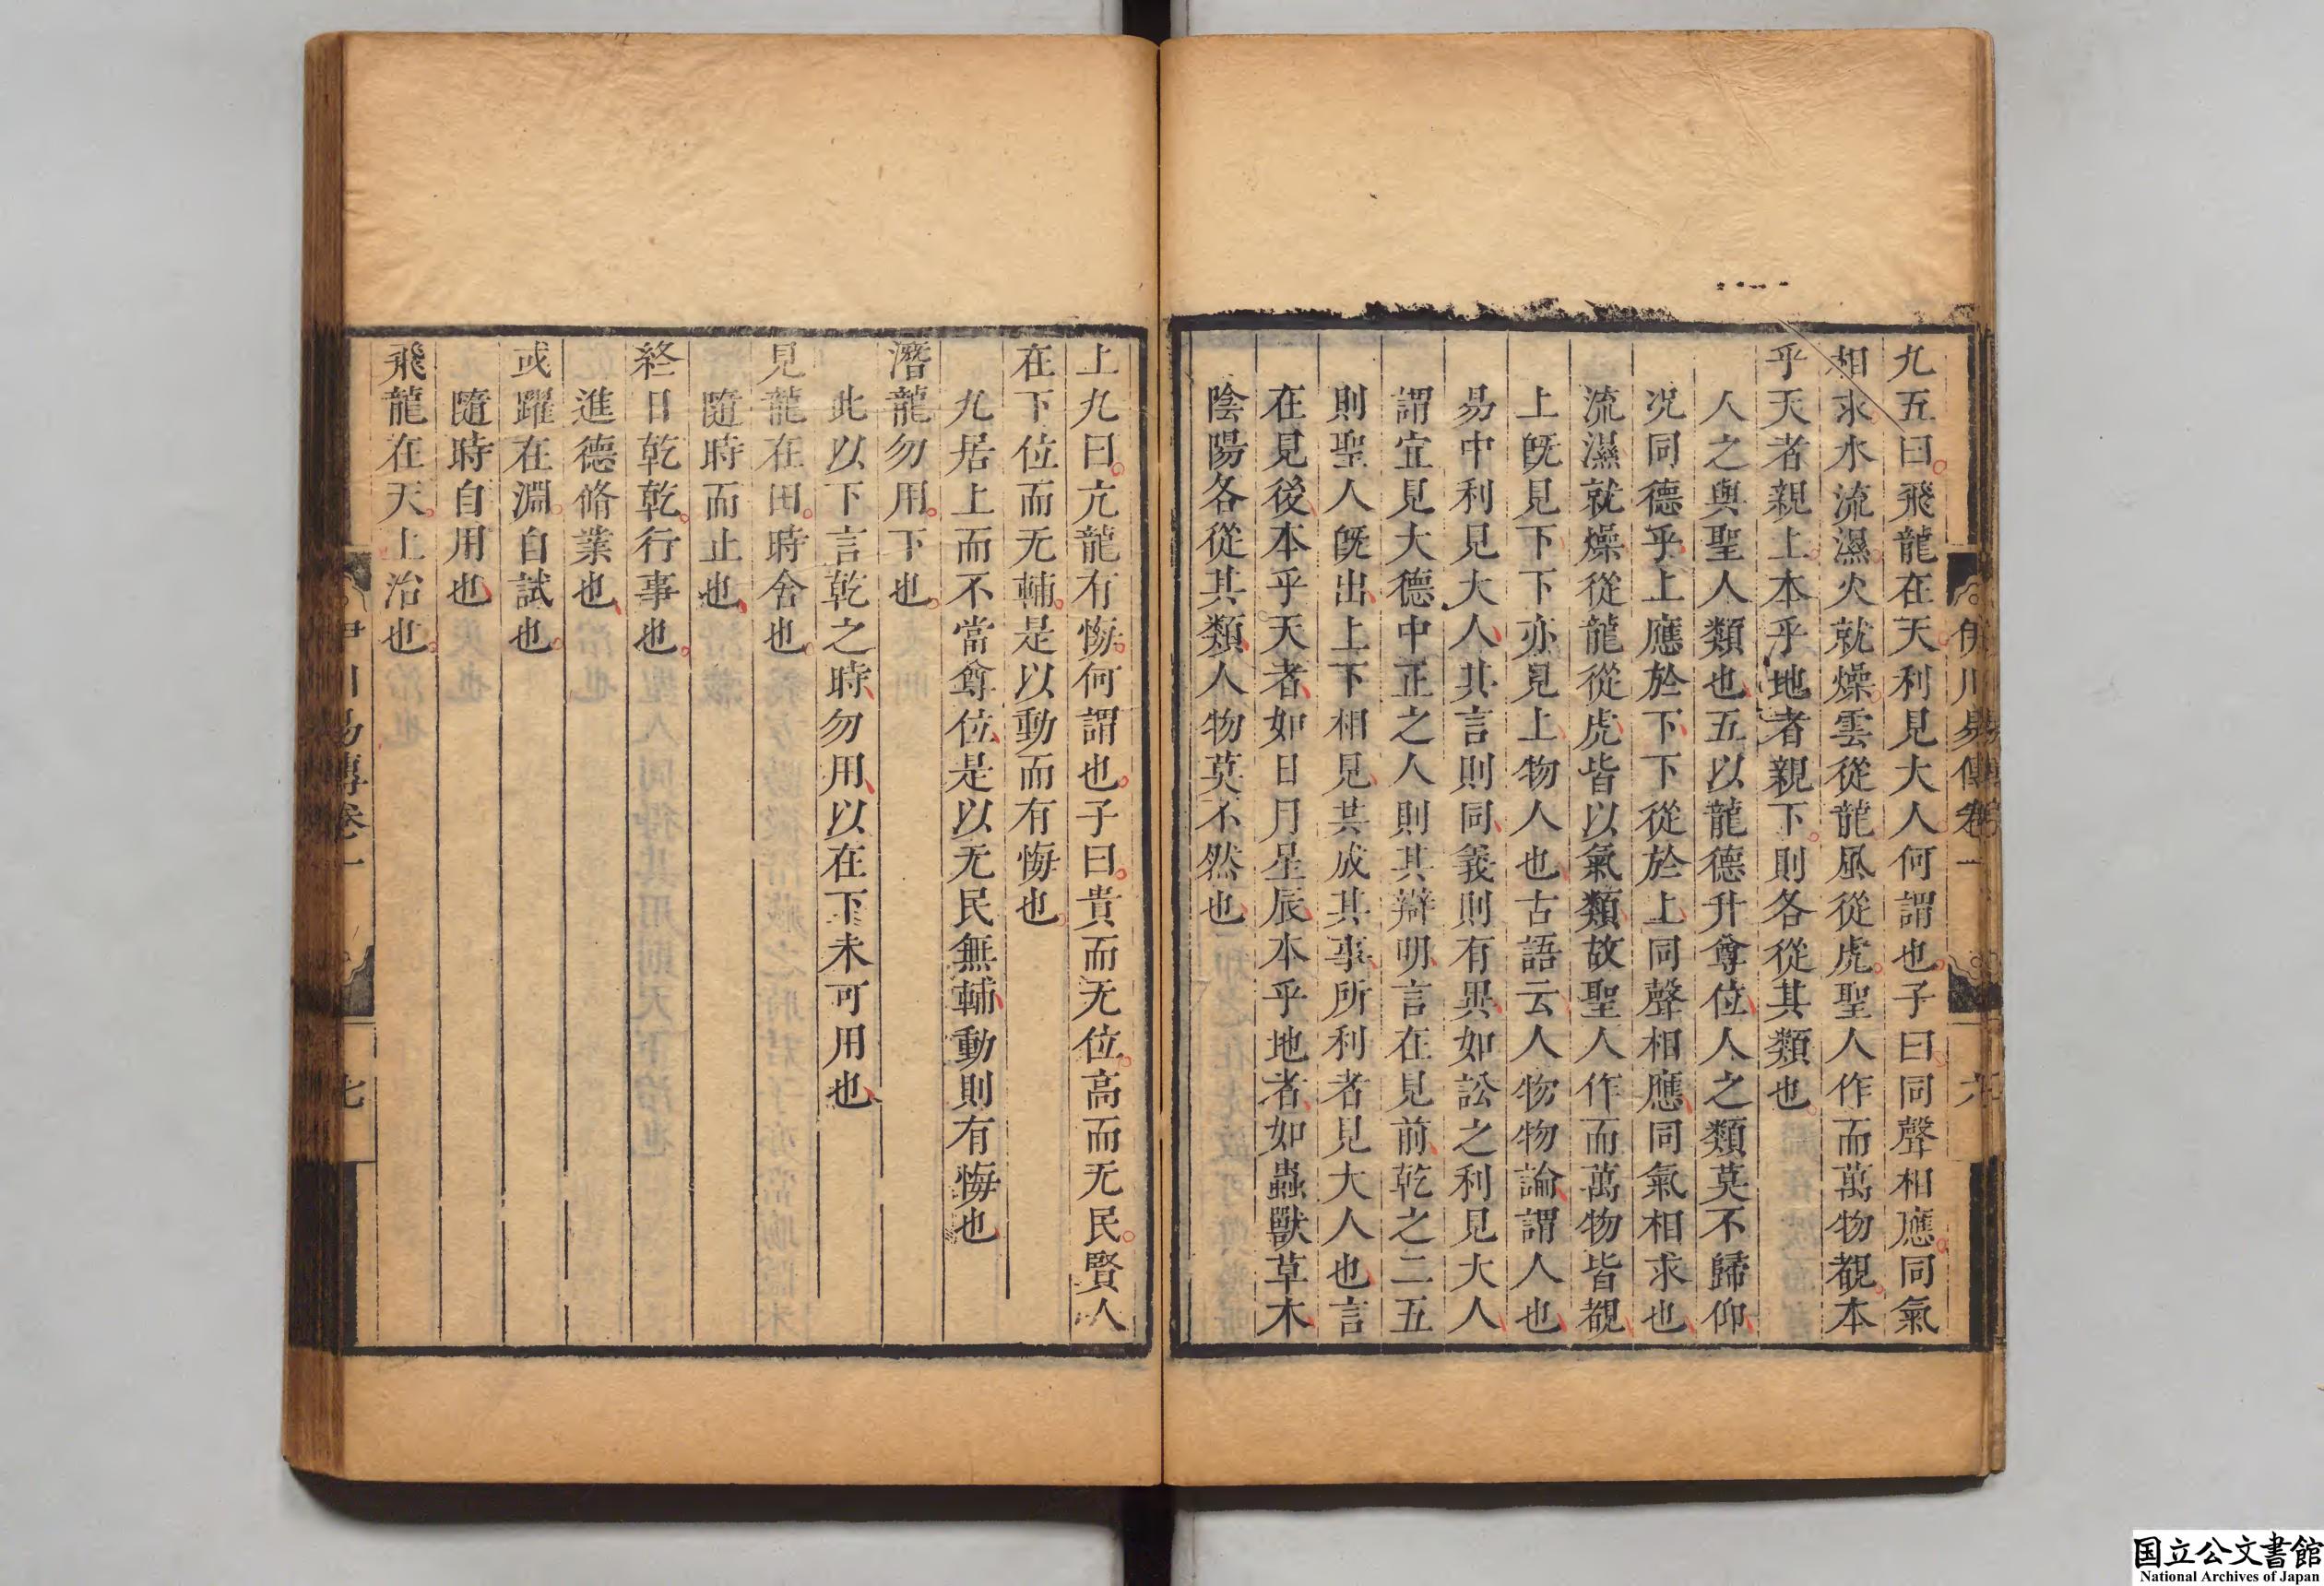 伊川易傳卷一
六
九五曰飛龍在天利見大人何謂也子曰同聲相應同氣
相求水流濕火就燥雲從龍風從虎聖人作而萬物覩本
乎天者親上本乎地者親下則各從其類也
人之與聖人類也五以龍德升尊位人之類莫不歸仰
況同德乎上應於下下從於上同聲相應同氣相求也
流濕就燥從龍從虎皆以氣類故聖人作而萬物皆覩
上旣見下下亦見上物人也古語云人物物論謂人也
易中利見大人其言則同義則有異如訟之利見大人
謂宜見大德中正之人則其辯明言在見前乾之二五
則聖人旣出上下相見共成其事所利者見大人也言
在見後本乎天者如日月星辰本乎地者如蟲獸草木
陰陽各從其類人物莫不然也
上九曰亢龍有悔何謂也子曰貴而无位高而无民賢人
在下位而无輔是以動而有悔也
九居上而不當尊位是以无民無輔動則有悔也
潛龍勿用下也
此以下言乾之時勿用以在下未可用也
見龍在田時舍也
隨時而止也
終日乾乾行事也
進德脩業也
或躍在淵自試也
隨時自用也
飛龍在天上治也
伊川易傳卷一
七
国立公文書館
National Archives of Japan